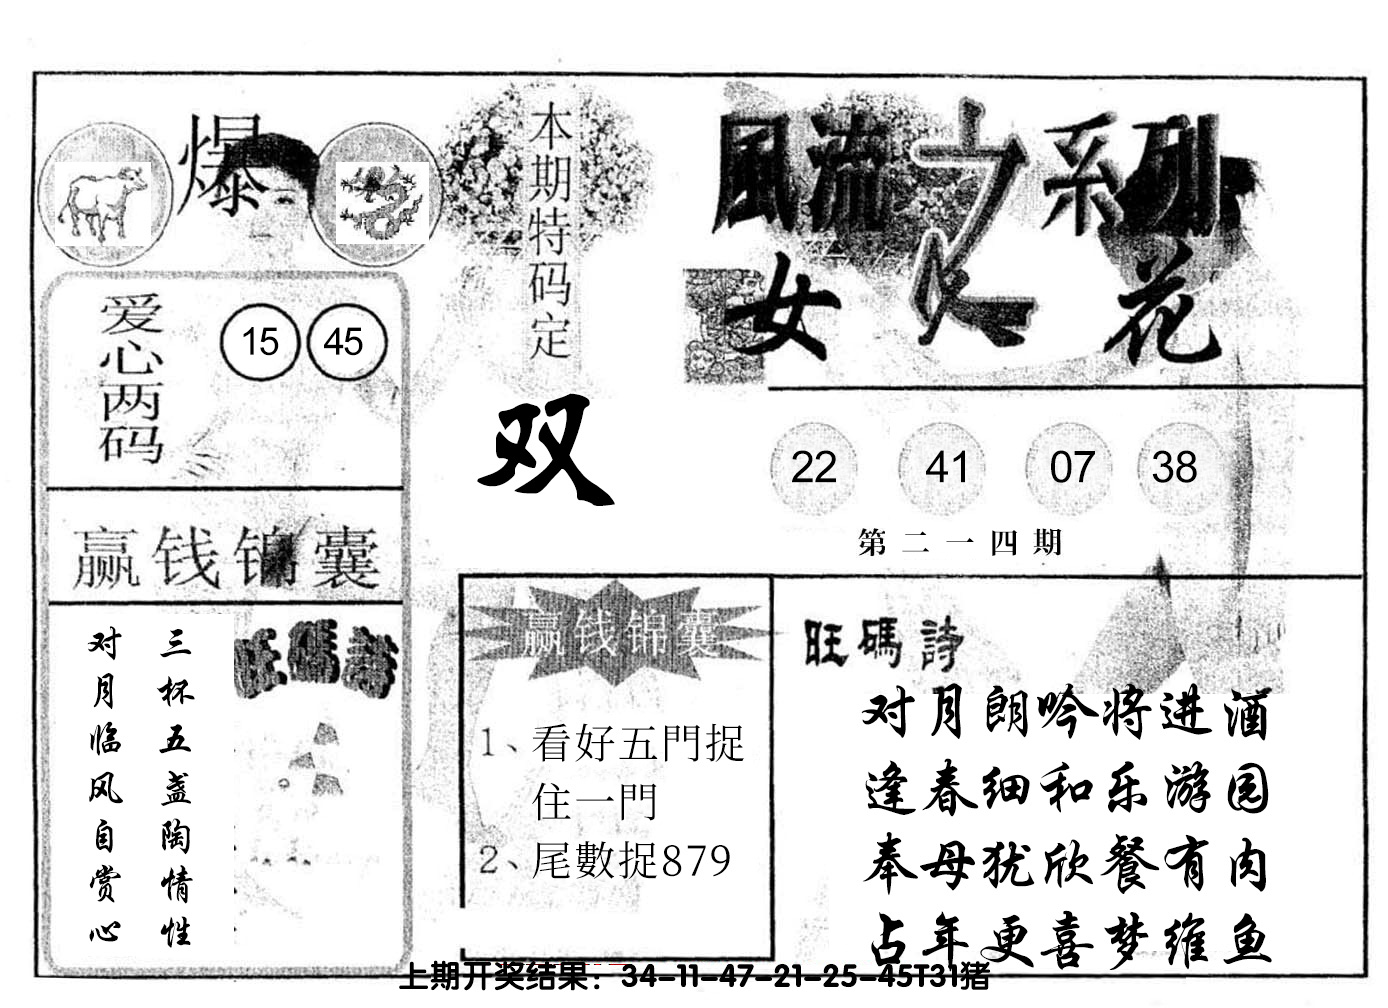 爆
本期特码定
双
風流之系列
女人花
爱心两码
15 45
22 41 07 38
第二一四期
赢钱锦囊
旺碼詩
三杯五盏陶情性
对月临风自赏心
赢钱锦囊
1、看好五門捉
住一門
2、尾數捉879
旺碼詩
对月朗吟将进酒
逢春细和乐游园
奉母犹欣餐有肉
占年更喜梦维鱼
上期开奖结果：34-11-47-21-25-45T31猪